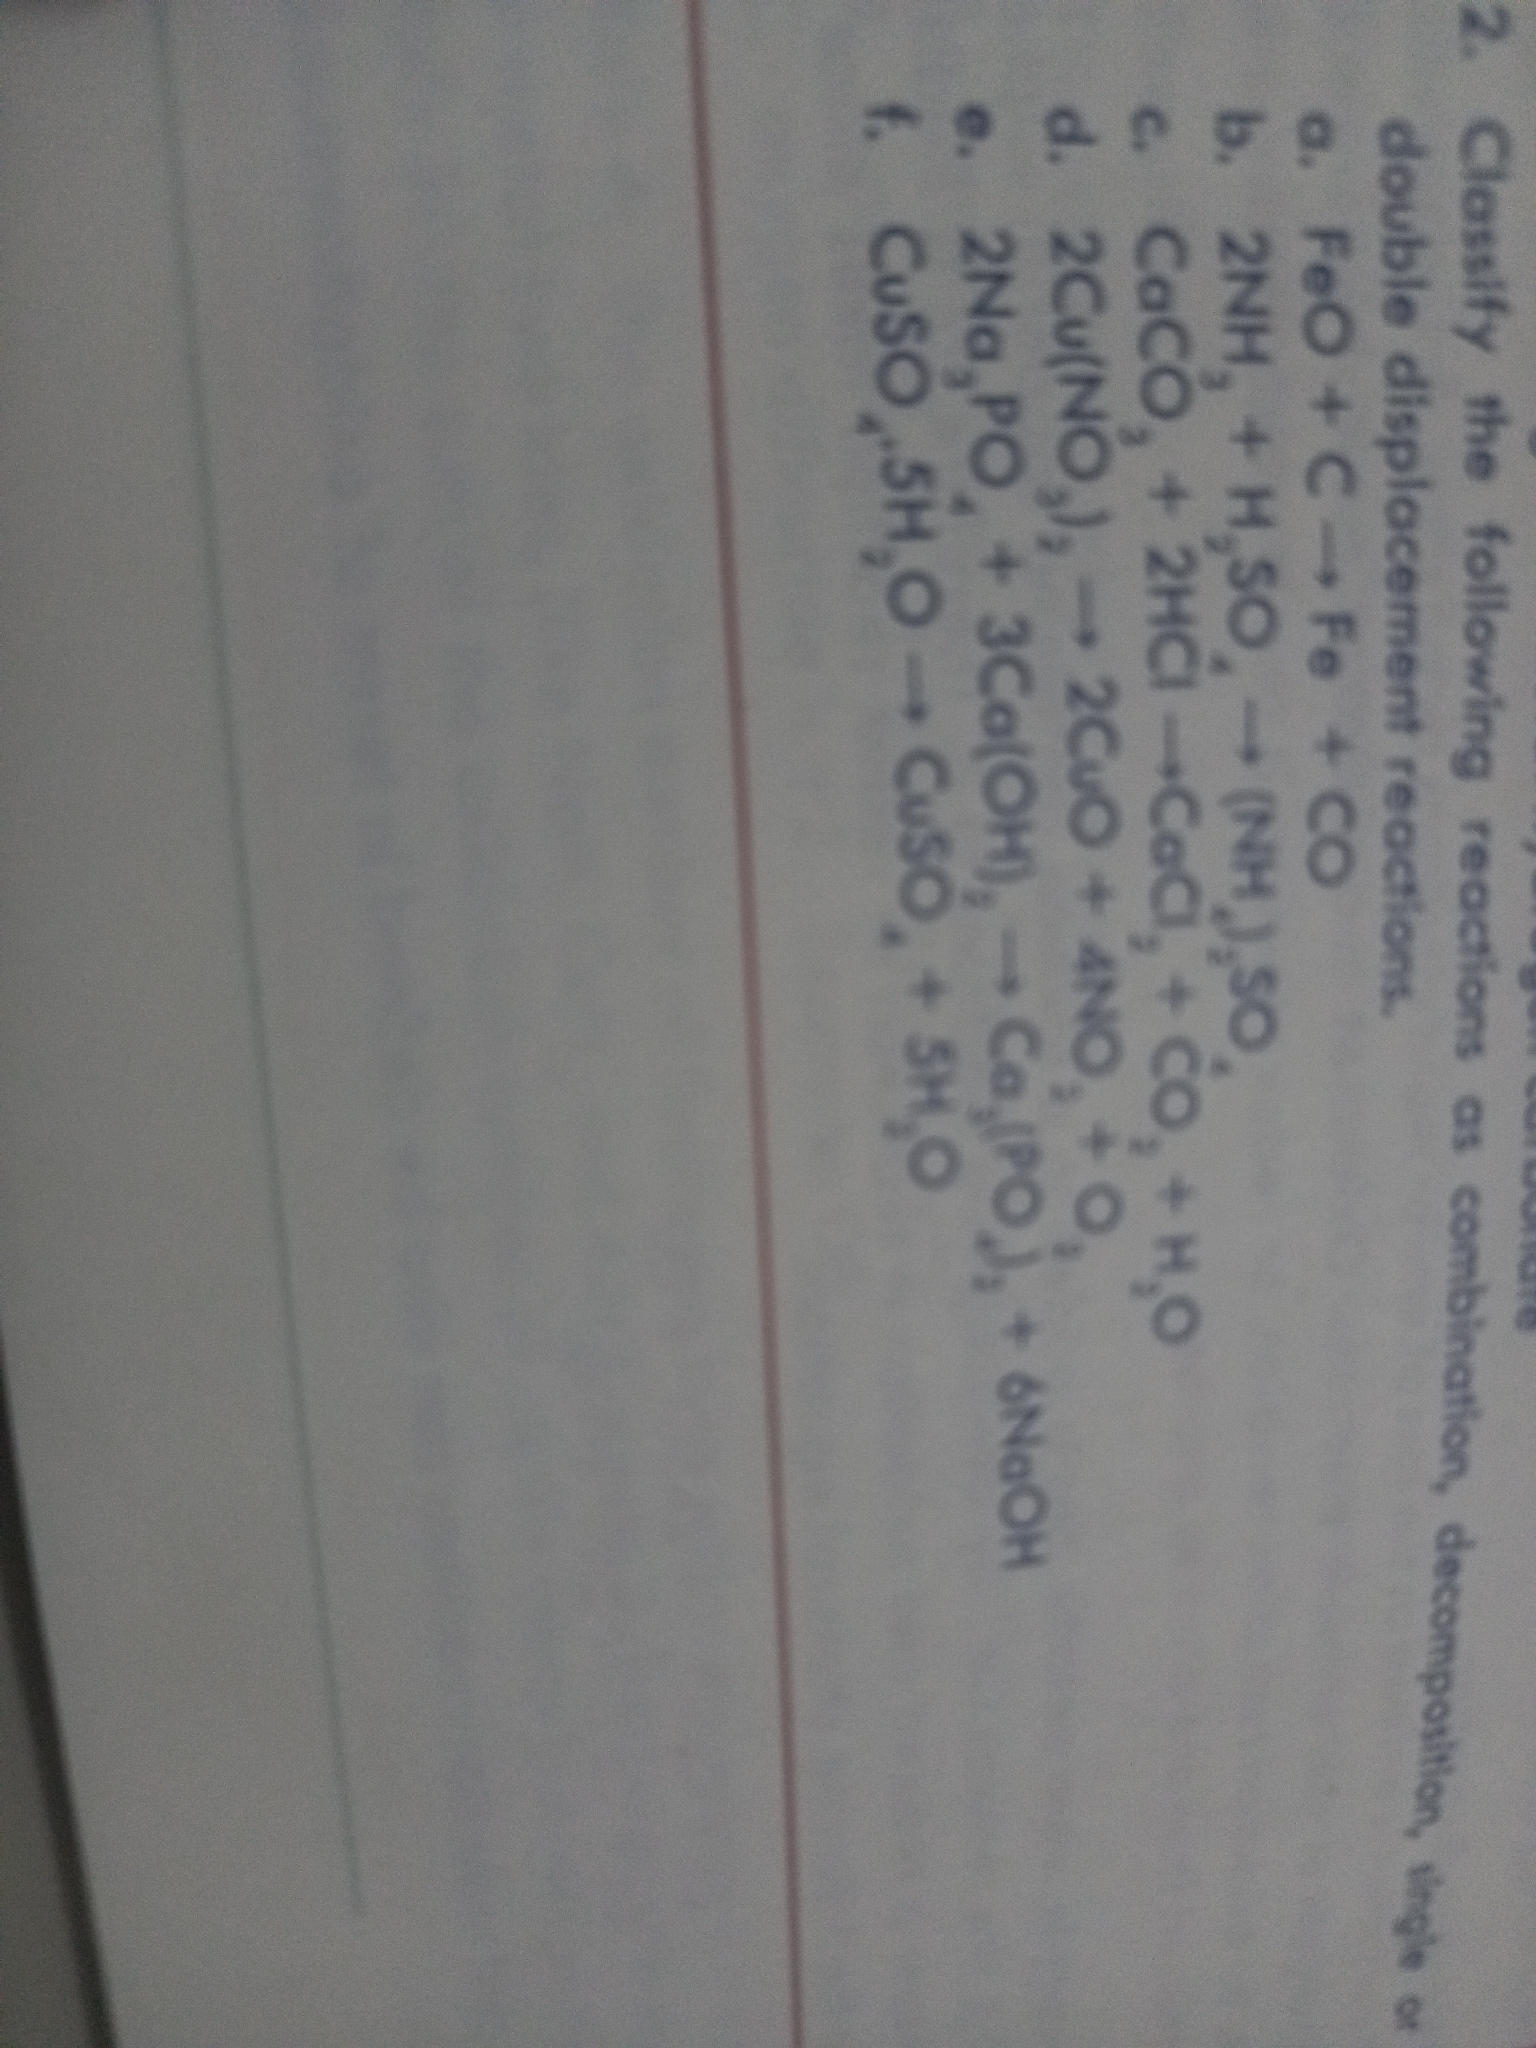 2. Classify the following reactions as combination, decomposition, single or
double displacement reactions.
a. FeO + C → Fe + CO
b. 2NH₃ + H₂SO₄ → (NH₄)₂SO₄
c. CaCO₃ + 2HCl →CaCl₂ + CO₂ + H₂O
d. 2Cu(NO₃)₂ → 2CuO + 4NO₂ + O₂
e. 2Na₃PO₄ + 3Ca(OH)₂ → Ca₃(PO₄)₂ + 6NaOH
f. CuSO₄.5H₂O → CuSO₄ + 5H₂O